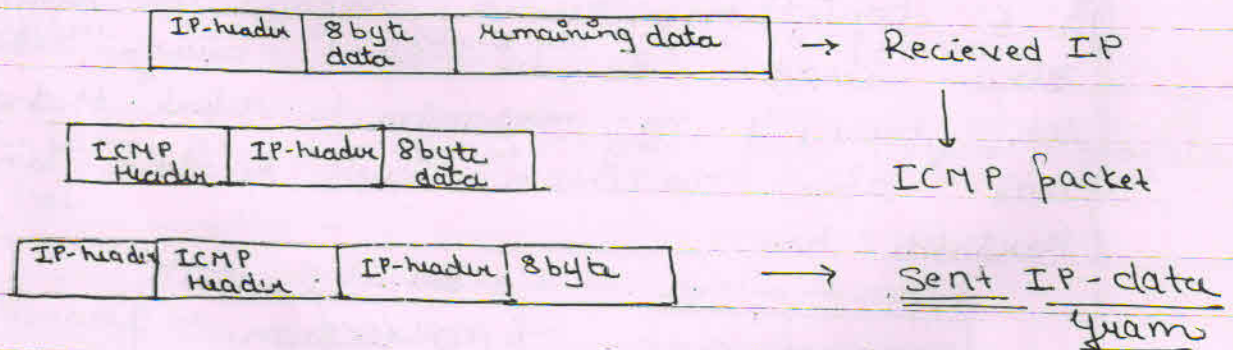 IP-header 8 byte data remaining data → Recieved IP
ICMP Header IP-header 8 byte data ICMP packet
IP-header ICMP Header IP-header 8 byte → Sent IP-data gram